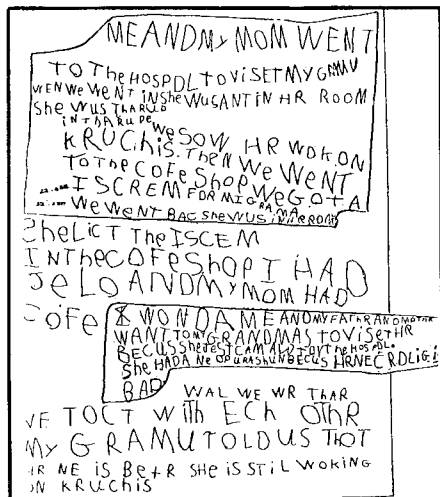 ME AND My MOM WENT
TO The HOSPDL TO VISET MY GRMU
WEN WE WENT IN She WUSANT IN HR ROOM
She WUS ThARUD
IN ThARUPE
We SOW HR WOKON
KRUChiS. TheN We WeNT
TO The COFe ShOP We GOT A
ISCREM FOR MI GRAMA
We WeNT BAC She WUS IN HR ROOM
She LICT The ISCEM
IN The COFe ShOP I HAD
JeLO AND My MOM HAD
COFe
I WONDA ME AND MY FAThR AND MOThR
WANT TO MY GRANDMAS TO VISET HR
BECUS She JEST CAM ALUT OV The HOSPDL.
She HAD A Ne OPURAShUN BECUS HR NEC
BAD
WAL WE WR ThAR
WE TOCT WITh ECh OThR
My GRAMU TOLD US ThOT
HR NE IS BeTR SHe IS STiL WOKING
ON KRUChiS